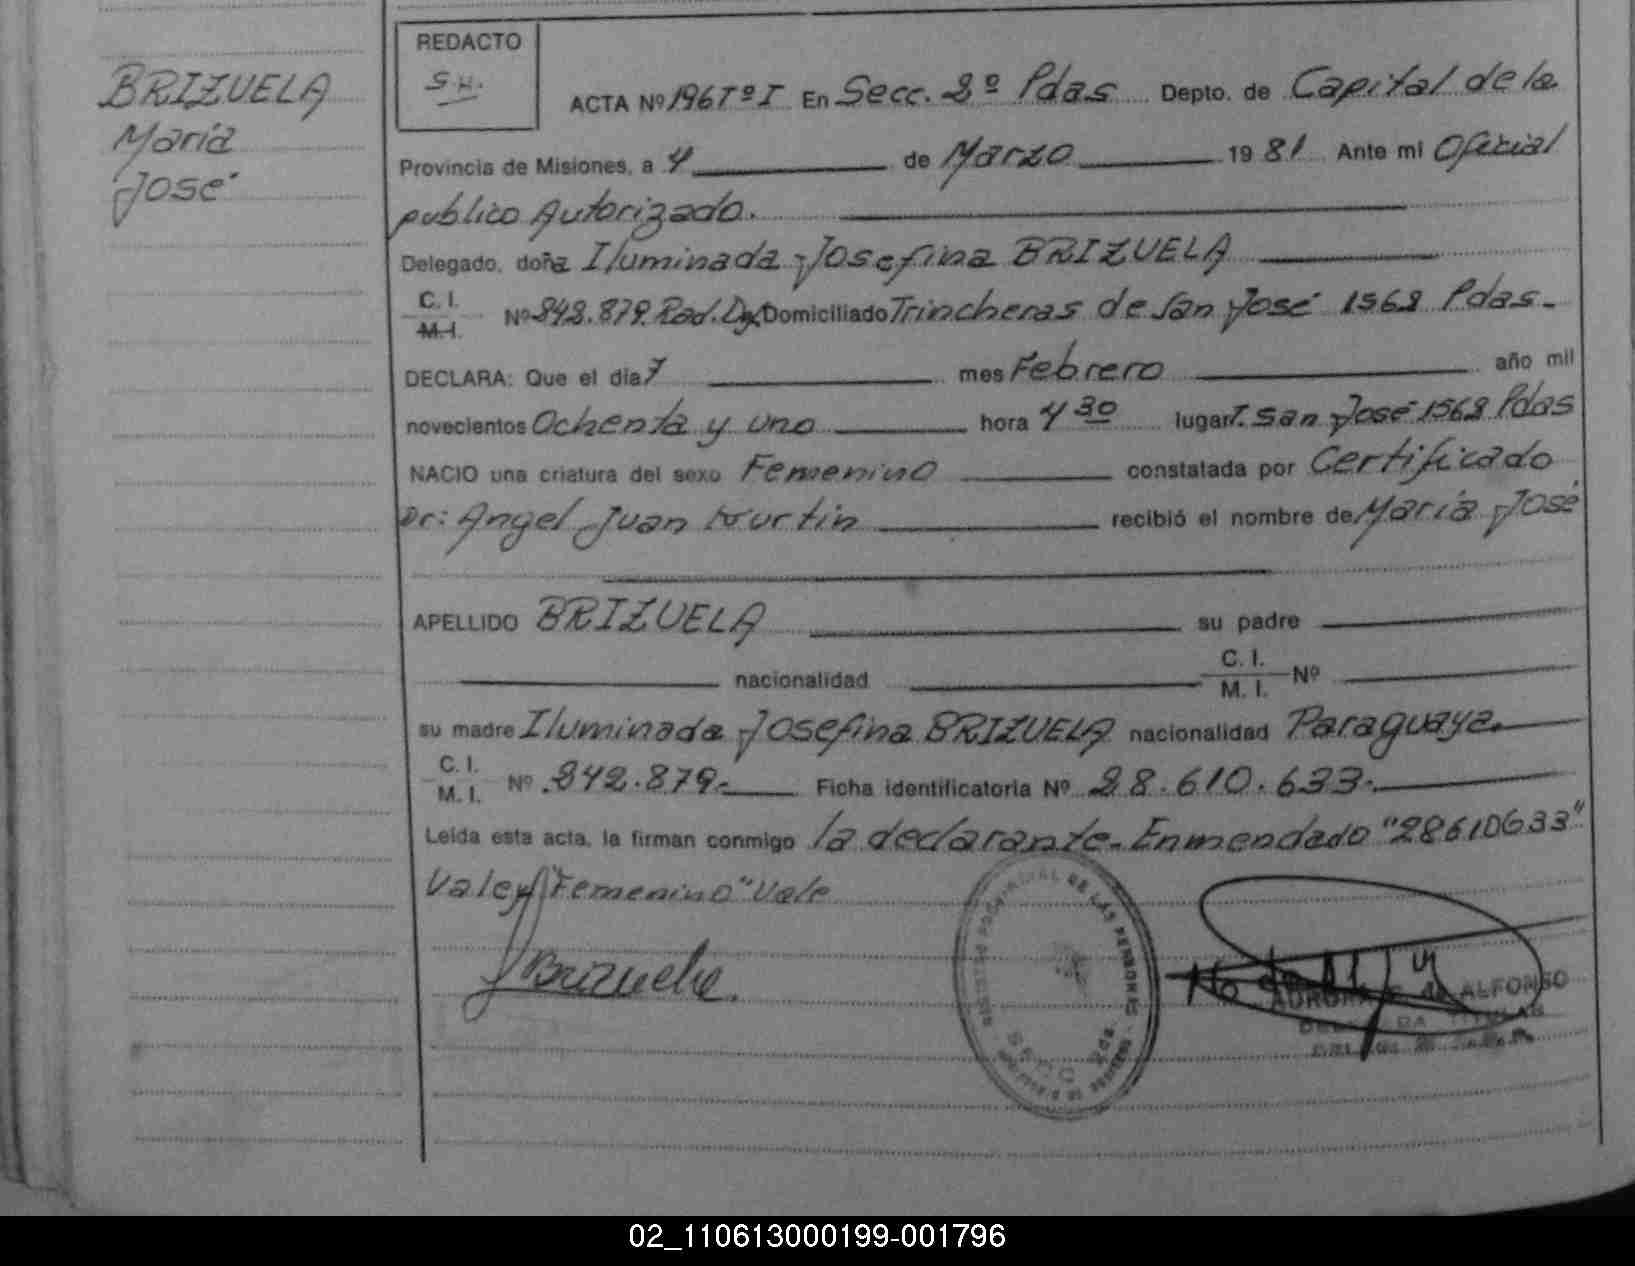 BRIZUELA
María
José
REDACTO
S.H.
ACTA Nº 196 Tº I En Secc. 2º Pdas Depto. de Capital de la
Provincia de Misiones, a 4 de Marzo 1981 Ante mi Oficial
publico Autorizado.
Delegado, doña Iluminada Josefina BRIZUELA
C. I.
M. I.
Nº 842.879. Rad. Domiciliado Trincheras de San José 1568 Pdas.
DECLARA: Que el día 7 mes Febrero año mil
novecientos Ochenta y uno hora 4 30 lugar T. San José 1568 Pdas
NACIO una criatura del sexo Femenino constatada por Certificado
Dr: Angel Juan recibió el nombre de María José
APELLIDO BRIZUELA su padre
nacionalidad C. I. M. I. Nº
su madre Iluminada Josefina BRIZUELA nacionalidad Paraguaya.
C. I.
M. I.
Nº 842.879.- Ficha identificatoria Nº 28.610.633.-
Leída esta acta, la firman conmigo la declarante. Enmendado "28610633"
Vale y "Femenino" Vale
JBrizuela.
PROVINCIAL DE LAS PERSONAS
AURORA ALFONSO
TITULAR
02_110613000199-001796